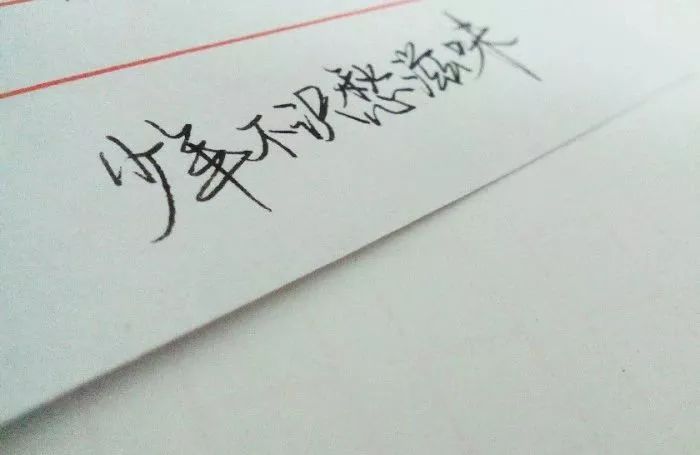 少年不识愁滋味